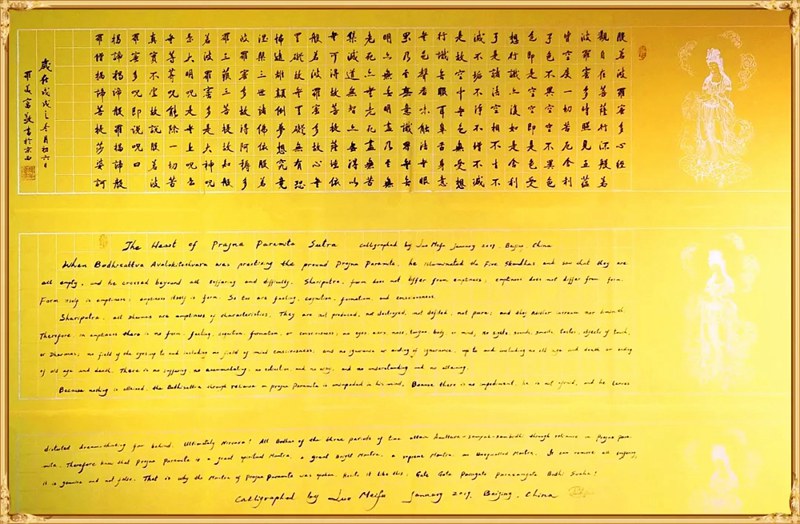 般若波羅密多心經
觀自在菩薩行深般若
波羅密多時照見五蘊
皆空度一切苦厄舍利
子色不異空空不異色
色即是空空即是色受
想行識亦復如是舍利
子是諸法空相不生不
滅不垢不淨不增不減
是故空中無色無受想
行識無眼耳鼻舌身意
無色聲香味觸法無眼
界乃至無意識界無無
明亦無無明盡乃至無
老死亦無老死盡無苦
集滅道無智亦無得以
無所得故菩提薩埵依
般若波羅密多故心無
罣礙無罣礙故無有恐
怖遠離顛倒夢想究竟
涅槃三世諸佛依般若
波羅密多故得阿耨多
羅三藐三菩提故知般
若波羅密多是大神咒
是大明咒是無上咒是
無等等咒能除一切苦
真實不虛故說般若波
羅密多咒即說咒曰
揭諦揭諦波羅揭諦般
羅僧揭諦菩提莎婆訶
歲在戊戌之冬月初六日
羅美富敬書於京西
The Heart of Prajna Paramita Sutra Calligraphed by Luo Meifu January 2019. Beijing, China
When Bodhisattva Avalokiteshvara was practicing the Prajna Paramita, he illuminated the Five Skandhas and saw that they are
all empty, and he crossed beyond all suffering and difficulty. Shariputra, form does not differ from emptiness; emptiness does not differ from form.
Form itself is emptiness; emptiness itself is form. So too are feeling, cognition, formation, and consciousness.
Shariputra, all Dharmas are emptiness of characteristics. They are not produced, not destroyed, not defiled, not pure; and they neither increase nor diminish.
Therefore, in emptiness there is no form, feeling, cognition, formation, or consciousness; no eyes, ears, nose, tongue, body or mind; no sights, sounds, smells, tastes, objects of touch,
or Dharmas; no field of the eyes up to and including no field of mind consciousness; and no ignorance or ending of ignorance, up to and including no old age and death or ending
of old age and death. There is no suffering, no accumulating, no extinction, and no way, and no understanding and no attaining.
Because nothing is attained, the Bodhisattva through reliance on prajna Paramita is unimpeded in his mind. Because there is no impediment, he is not afraid, and he leaves
distorted dream-thinking far behind. Ultimately Nirvana! All Buddhas of the three periods of time attain Anuttara-samyak-sambodhi through reliance on Prajna Para-
mita. Therefore know that Prajna Paramita is a great spiritual Mantra, a great bright Mantra, a supreme Mantra, an Unequalled Mantra. It can remove all suffering;
it is genuine and not false. That is why the Mantra of Prajna Paramita was spoken. Recite it like this: Gate Gate Paragate Parasamgate Bodhi Svaha!
Calligraphed by Luo Meifu January 2019. Beijing, China